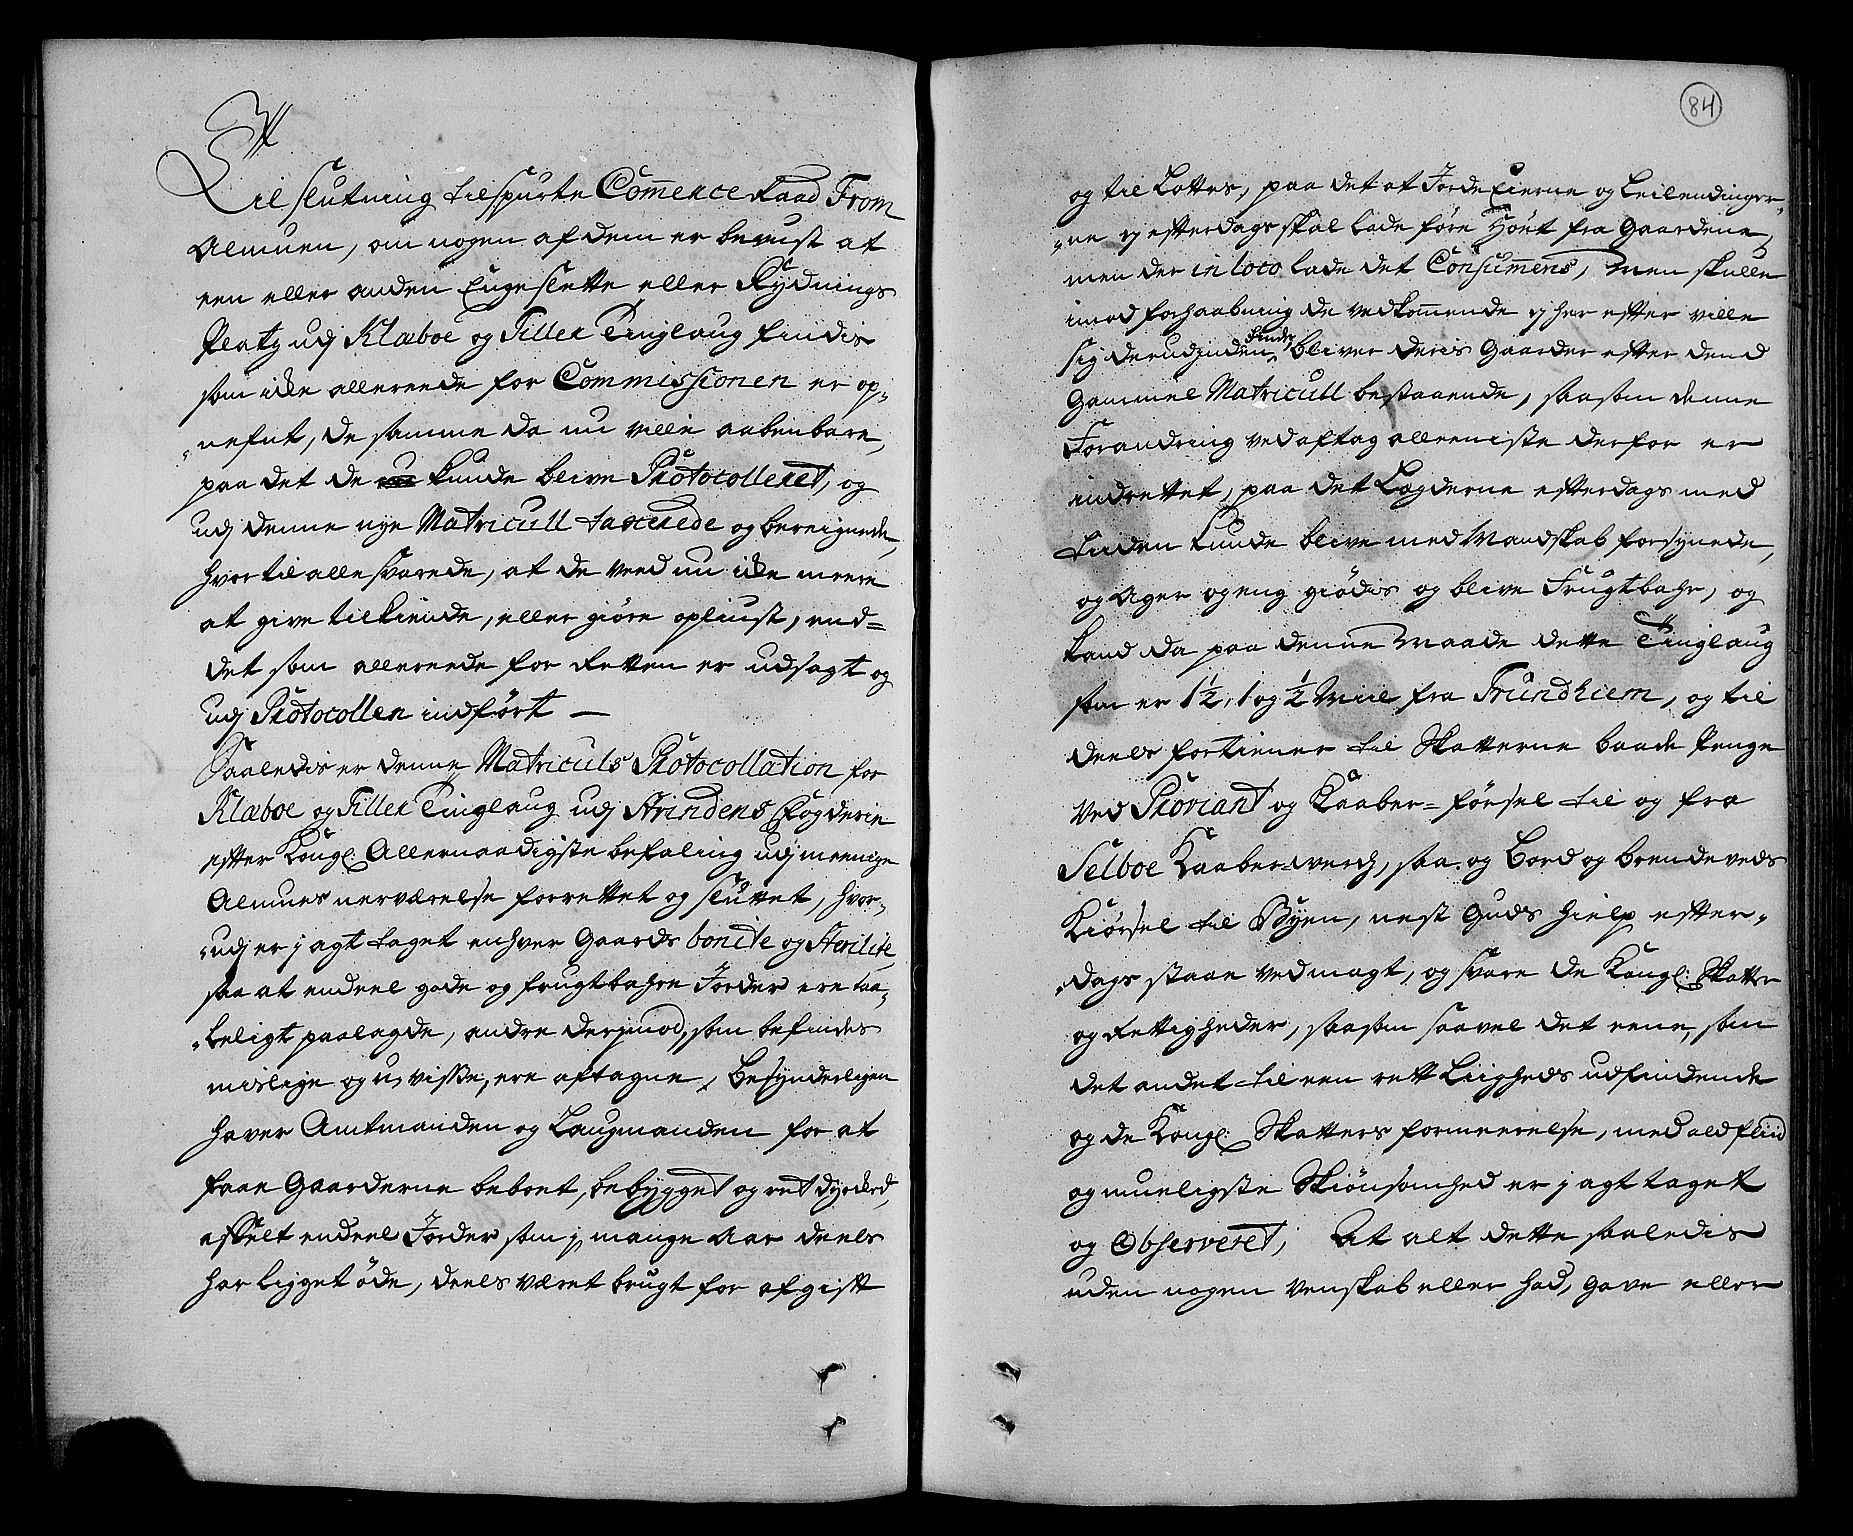 Til slutning tilspurte Commerce Raad From
Almuen, om nogen af dem er bevust at
een eller anden Engeslette eller Rydnings
Platz udj Klæboe og Tiller Tinglaug findis
som icke allereede for Commissionen er op-
nefnt, de samme da nu ville aabenbare,
paa det de kunde blive Protocolleret, og
udj denne nye Matricull taxerede og bereignede,
hvortil alle svarede, at de veed nu icke meere
at give tilkiende, eller giöre opliust, end=
det som allereede for Retten er udsagt og
udj Protocollen indfört —
Saaledis er denne Matriculs Protocollation for
Klæboe og Tiller Tinglaug udj Strindens Fogderie
efter Kongl: Allernaadigste befaling udj meenige
Almues nerværelse forrettet og sluttet, hvor-
udj er j agt taget enhver Gaards bonite og Sterilite,
saa at endeel gode og frugtbahre Jorder ere taa-
leligt paalagde, andre derjmod, som befindes
mislige og u-visse, ere aftagne, besynderligen
haver Amtmanden og Laugmanden for at
faae Gaarderne beboet, bebygget og ret dyrcked,
affelt endeel Jorder som j mange Aar deels
har ligget öde, deels været brugt for afgift
84
og til Lottes, paa det at Jorde Eierne og Leilendinger-
ne ej efterdags skal lade före Höet fra Gaardene,
men der in loco lade det Consumens, Men skulle
imod forhaabning de vedkommende ej her efter ville
sig derudjnden finde, bliver deris Gaarder efter dend
Gammel Matricull bestaaende, saasom denne
Forandring ved aftag alleeniste derfor er
indrettet, paa det Legderne efterdags med
tiiden kunde blive med Mandskab forsynede,
og Ager og eng giödis og blive Frugtbahr, og
kand da paa denne Maade dette Tinglaug
som er 1½, 1 og ½ Miil fra Trundhiem, og til
deels fortiener til Skatterne baade Penge
ved Proviant og Kaaber=försel til og fra
Selboe Kaaber=werck, saa og Bord og brendeveds
Kiörsel til Byen, nest Guds hielp efter-
dags staae ved magt, og svare de Kongl: Skatter
og Rettigheder, saasom saavel det eene, som
det andet til een rett Liigheds udfindende
og de Kongl: Skatters formeerelse, med ald fliid
og mueligste Skiönsomhed er j agt taget
og Observeret; At alt dette saaledis
uden nogen Venskab eller had, gave eller